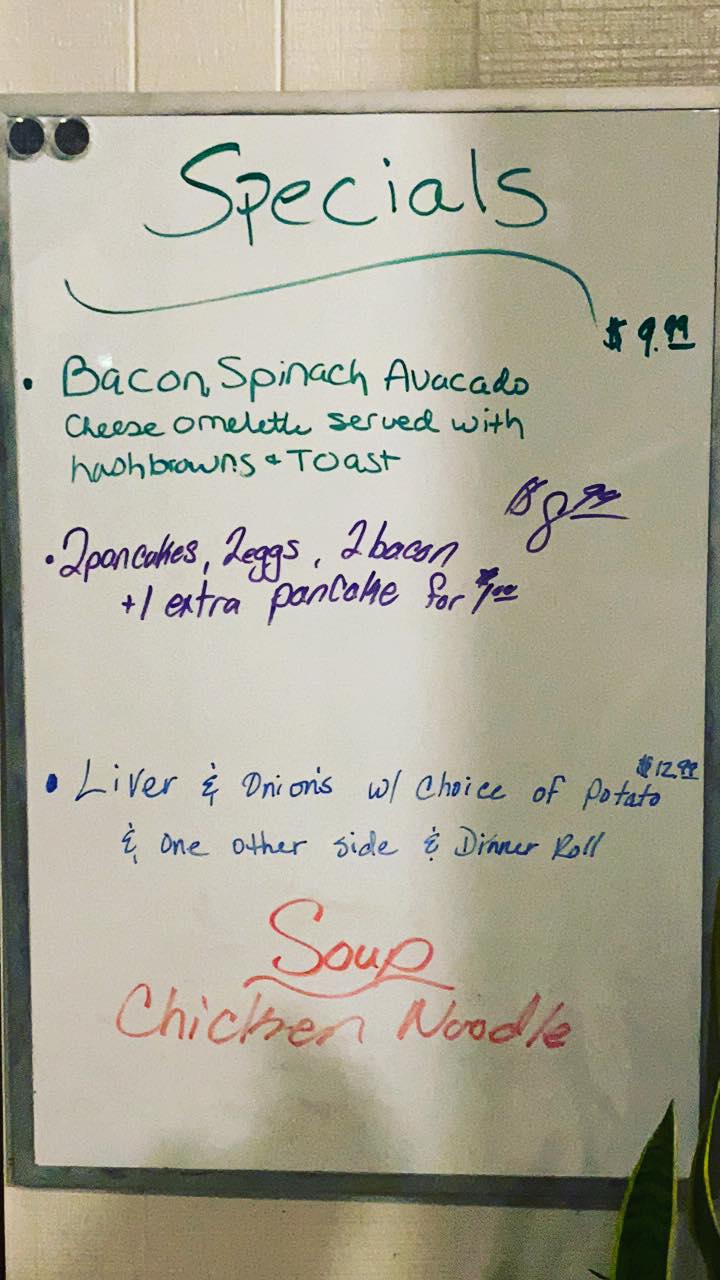 Specials
$ 9.99
• Bacon, Spinach Avacado
Cheese omelette served with
hashbrowns & Toast
$8.99
• 2 pancakes, 2 eggs, 2 bacon
+1 extra pancake for $1.00
$12.99
• Liver & Onion's w/ Choice of Potato
& One other side & Dinner Roll
Soup
Chicken Noodle